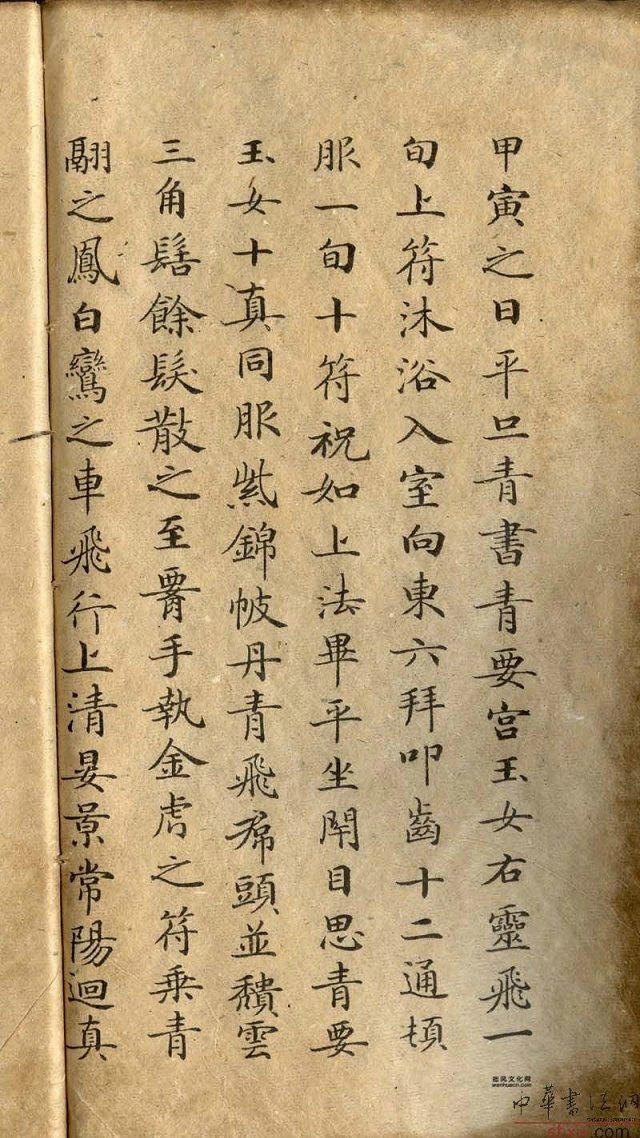 甲寅之日平旦青書青要宮玉女右靈飛一
旬上符沐浴入室向東六拜叩齒十二通頓
服一旬十符祝如上法畢平坐閉目思青要
玉女十真同服紫錦帔丹青飛帬頭並穨雲
三角髻餘髮散之至臀手執金虎之符乗青
翮之鳳白鸞之車飛行上清晏景常陽迴真
書風文化网
wenhuacn.com
中華書法網
.com